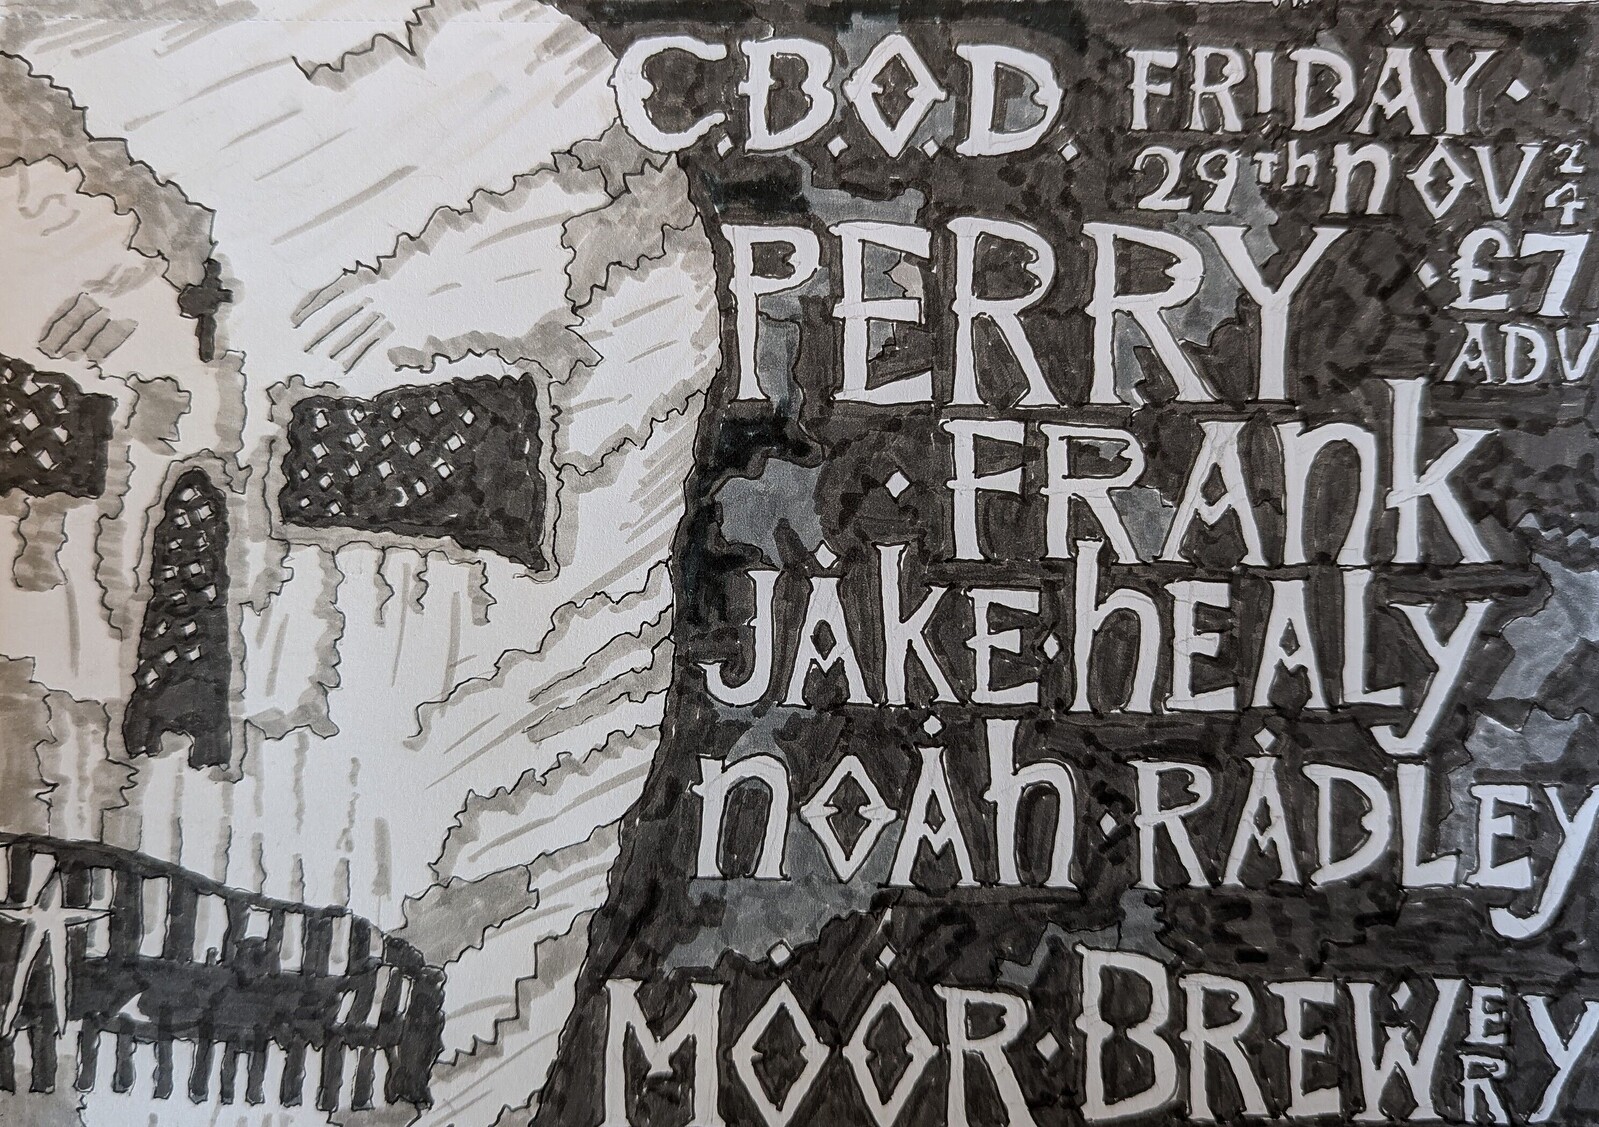 C.B.O.D. FRIDAY.
29Th nOV 24
PERRY · £7
ADV
· FRAnk
JAkE · hEALy
nOAh · RADLEY
MOOR · BREWERY